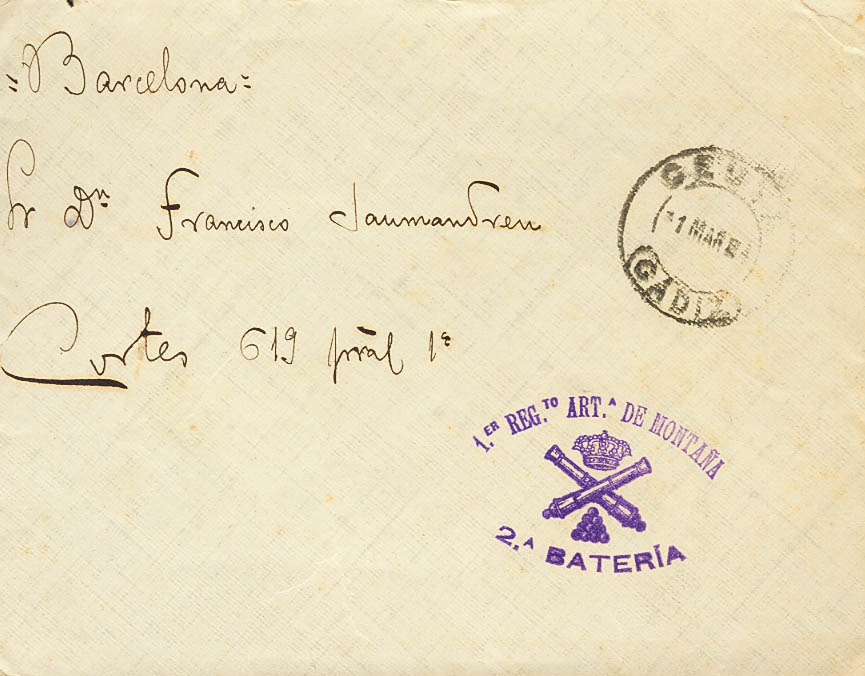 "Barcelona"
Sr Dn Francisco Jaumandreu
Cortes 619 pral 1ª
CEUTA
MAR
(CADIZ)
1.ER REG.TO ART.A DE MONTAÑA
2.A BATERÍA